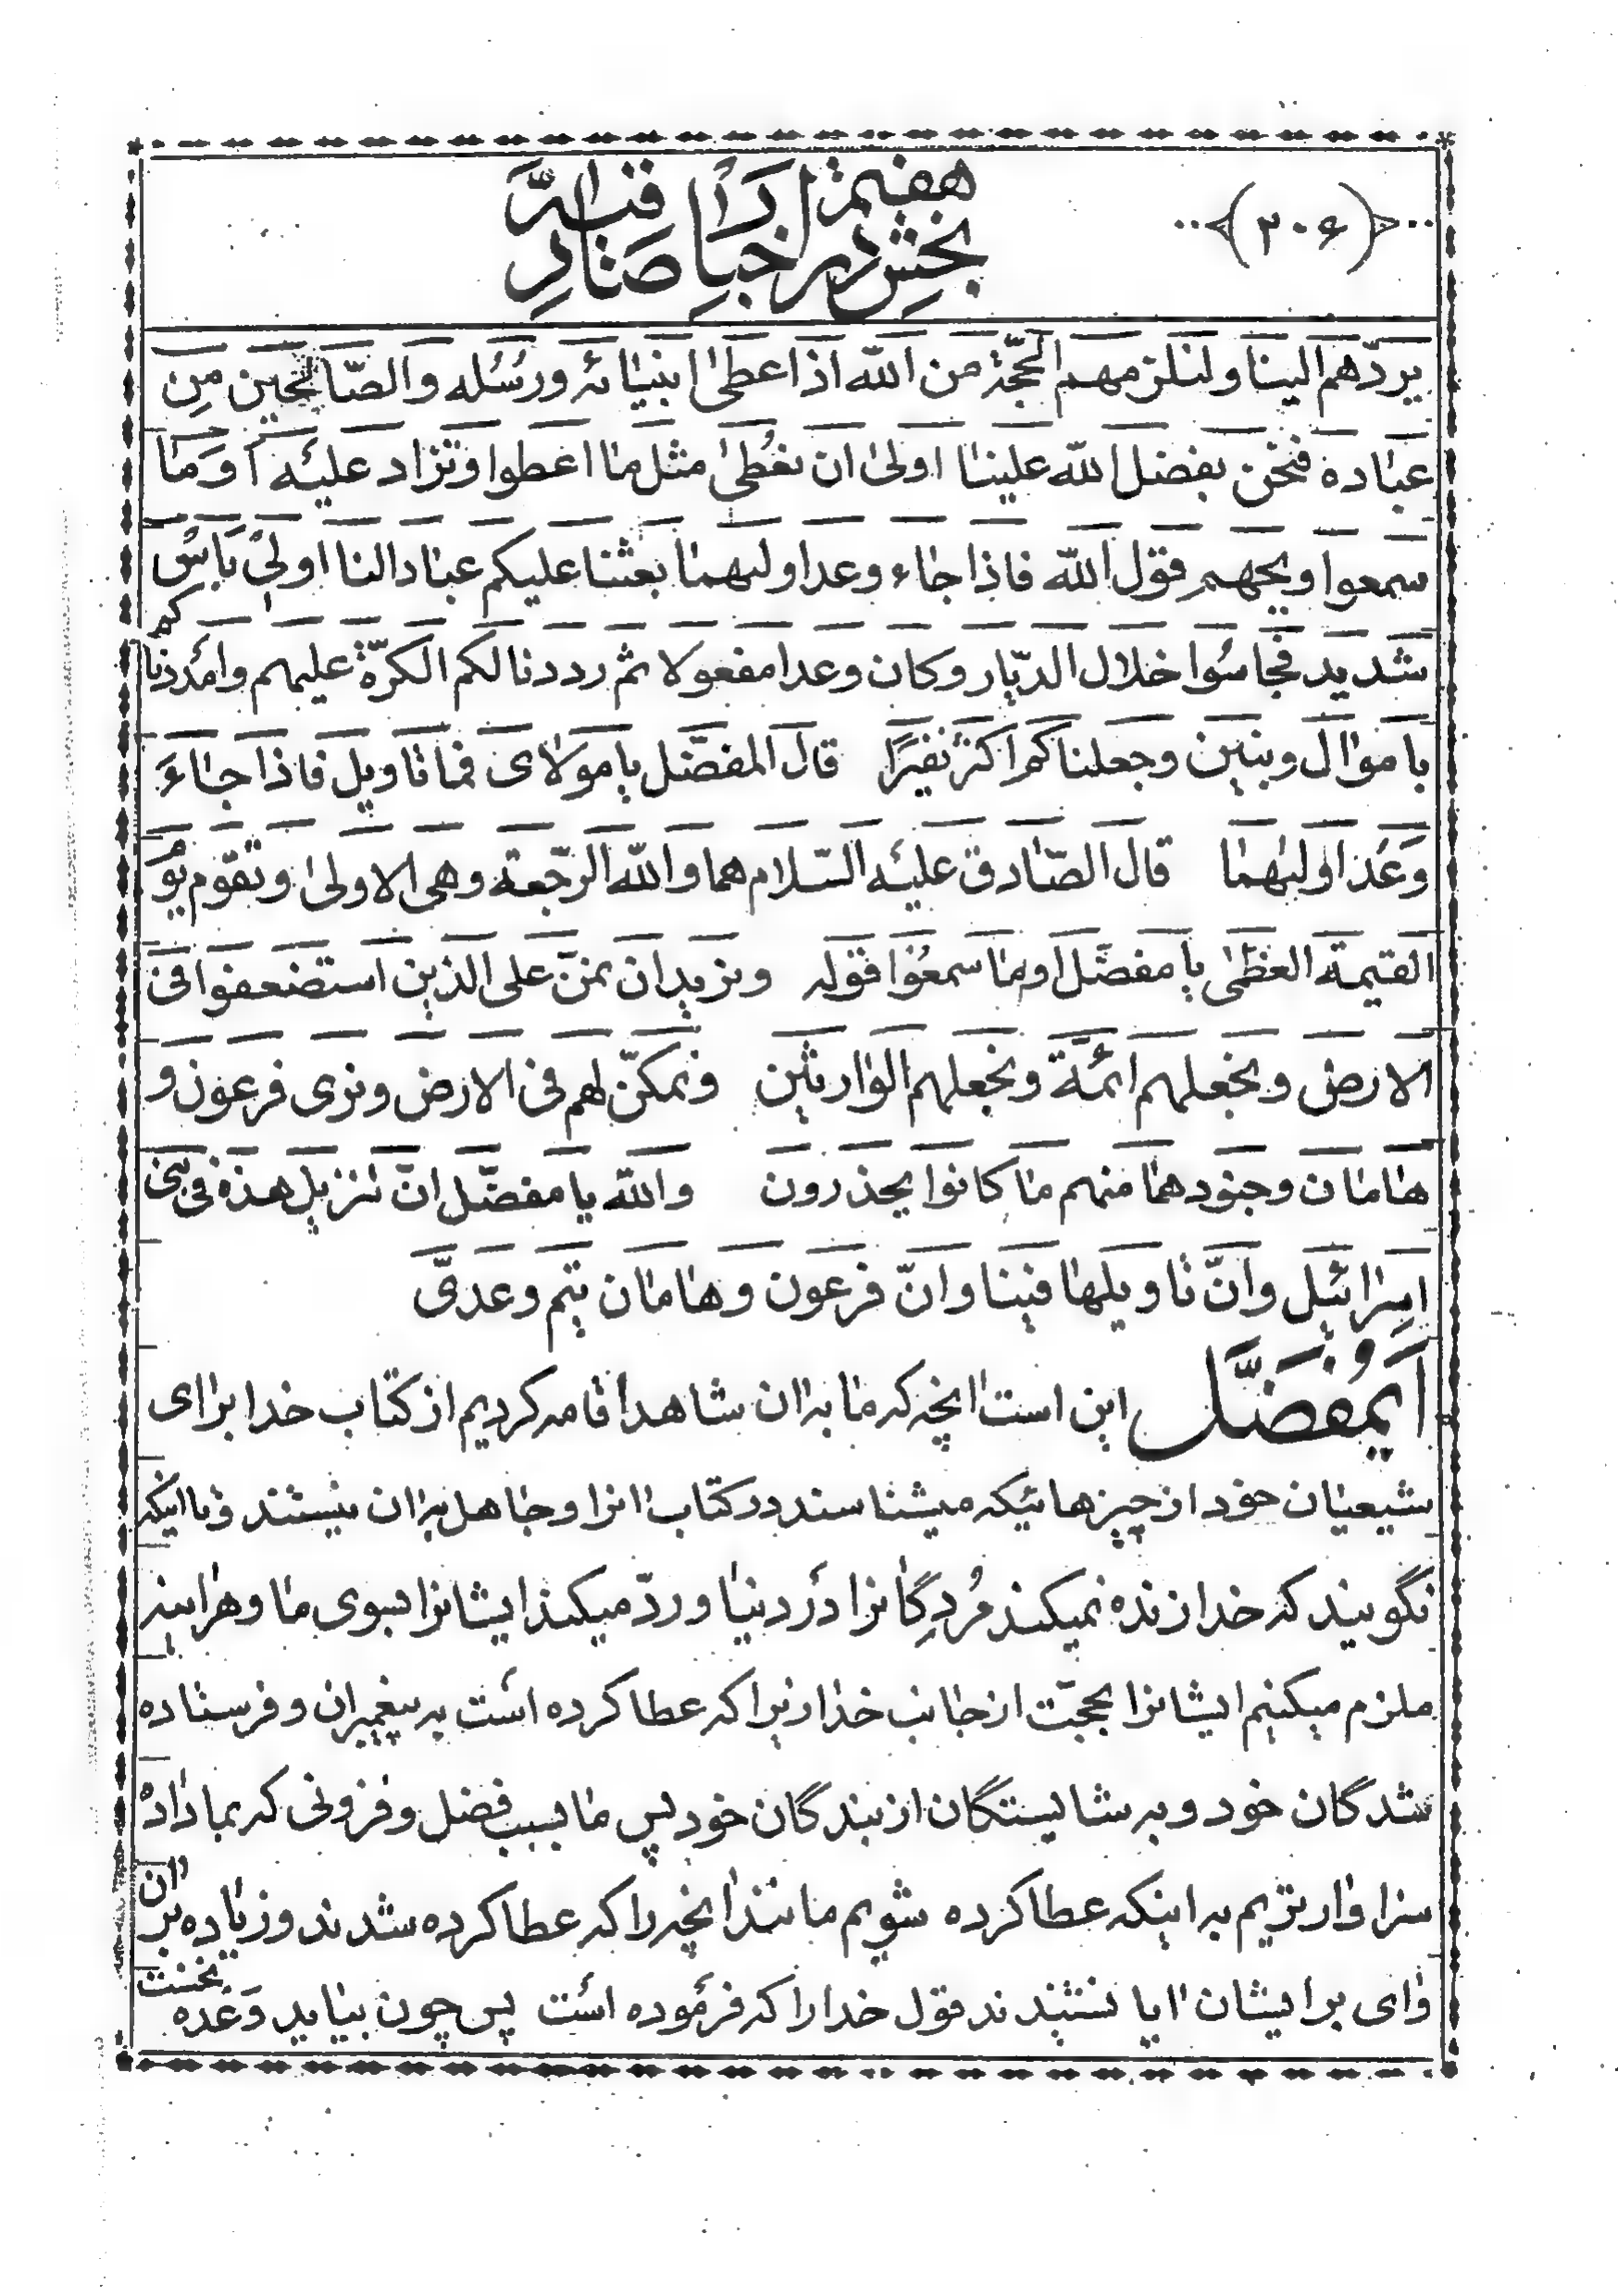 (۲۰۶)
بخش هفتم در اخبار صادر
یردّهم الینا ولنلزمهم الحجّة من الله اذا عطیٰ انبیائه ورسُله والصّالحین مِن
عباده فنحن بفضل الله علینا اولیٰ ان نعُطیٰ مثل ما اعطوا ونزاد علیه اَوَما
سمعوا ویحهم قول الله فاذا جاء وعد اولیهما بعثنا علیکم عبادا لنا اولیْ باسْ
شدید فجاسُوا خلال الدّیار وکان وعدا مفعولا ثم رددنا لکم الکرّة علیهم وامددناکم
باموال وبنین وجعلناکم اکثر نفیرًا قال المفضّل یا مولای فما تاویل فاذا جاءَ
وَعَد اولیهما قال الصّادق علیه السّلام هما والله الرّجعة وهی الاولیٰ وتقوّم یوُم
القیمة العظمیٰ یا مفضّل اوما سمعوُا قوله ونرید ان نمنّ علی الذین استضعفوا فی
الارض ونجعلهم ائمّة ونجعلهم الوارثین ونمکّن لهم فی الارض ونری فرعون و
هامان وجنودهما منهم ما کانوا یحذرون والله یا مفضّل انّ تنزیل هذه فی بنی
اسرائیل وانّ تاویلها فینا وانّ فرعون وهامان تیم وعدیّ
ایمُفضَّل این است انچه که ما به ان شاهد اقامه کردیم از کتاب خدا برای
شیعیان خود از چیزهائیکه میشناسند در کتاب انرا وجاهل به ان نیستند و تا اینکه
نگویند که خدا زنده نمیکند مُردِگانرا در دنیا وردّ میکند ایشانرا بسوی ما وهراینه
ملزم میکنیم ایشانرا بحجّت از جانب خدا زیرا که عطا کرده است به پیغمبران و فرستاده
شدگان خود و به شایستگان از بندگان خود پس ما بسبب فضل و فزونی که بما داده
سزاوارتریم به اینکه عطا کرده شویم مانند انچه را که عطا کرده شدند وزیاده بر ان
وای بر ایشان ایا نشنیدند قول خدا را که فرموده است پس چون بیاید وَعَده نخست